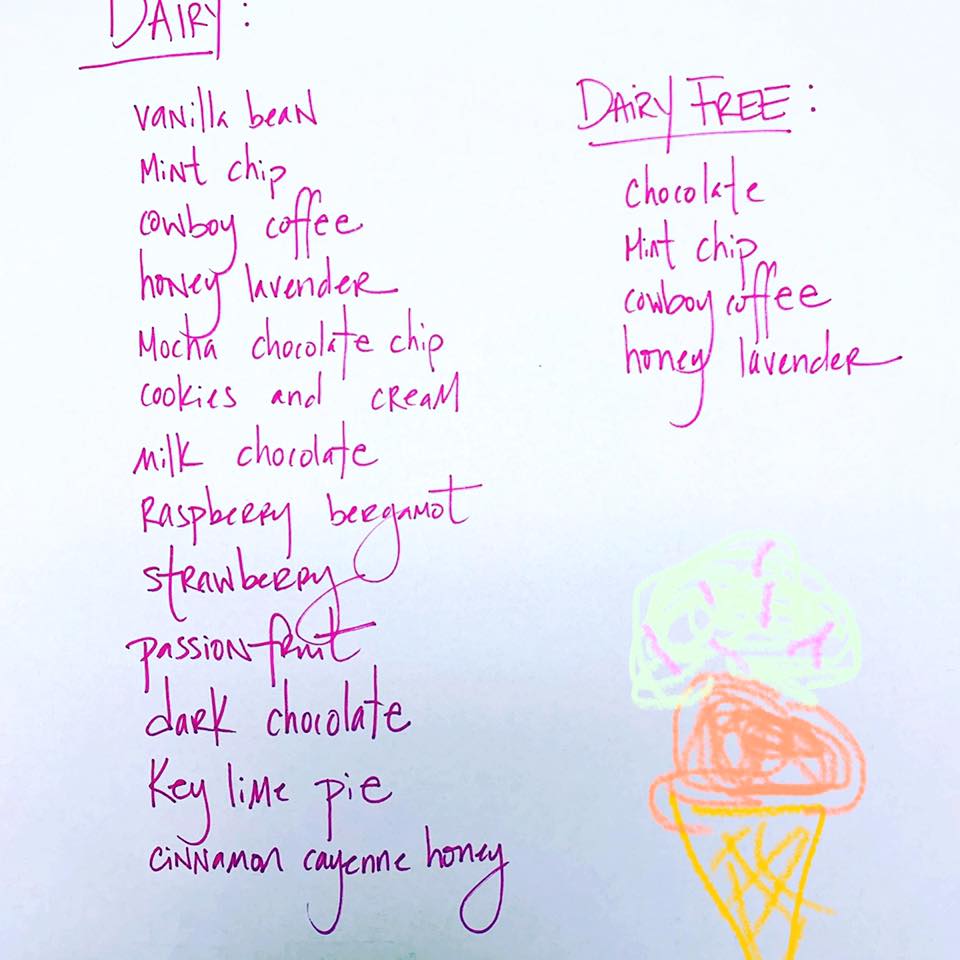 DAIRY:
vanilla bean
Mint chip
cowboy coffee
honey lavender
Mocha chocolate chip
cookies and cream
milk chocolate
Raspberry bergamot
strawberry
passion fruit
dark chocolate
Key lime pie
cinnamon cayenne honey
DAIRY FREE:
chocolate
Mint chip
cowboy coffee
honey lavender